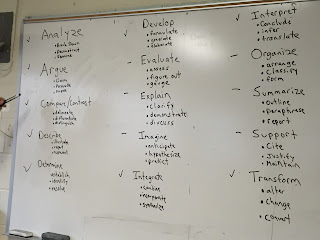 ✓ Analyze
• Break Down
✓ Argue
✓ Compare/Contrast
• delineate
• differentiate
• distinguish
✓ Describe
✓ Determine
• establish
• identify
• resolve
✓ Develop
• formulate
• generate
• elaborate
– Evaluate
• assess
• figure out
• gauge
– Explain
• clarify
• demonstrate
• discuss
– Imagine
• anticipate
• hypothesize
• predict
✓ Integrate
• combine
• incorporate
• synthesize
✓ Interpret
• Conclude
• infer
• translate
– Organize
• arrange
• classify
• form
– Summarize
• outline
• paraphrase
• report
– Support
• Cite
• Justify
• Maintain
✓ Transform
• alter
• change
• convert